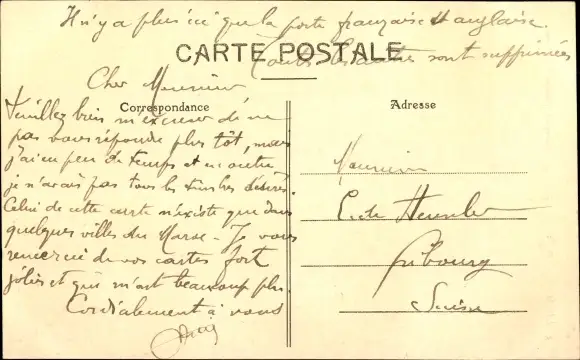 Il n'y a plus ici que la poste française et anglaise.
Toutes les autres sont supprimées
CARTE POSTALE
Cher Monsieur
Correspondance
Veuillez bien m'excuser de ne
pas vous répondre plus tôt, mais
j'ai eu peu de temps et en outre
je n'avais pas tous les timbres désirés.
Celui de cette carte n'existe que dans
quelques villes du Maroc - Je vous
remercie de vos cartes fort
jolies et qui m'ont beaucoup plu.
Cordialement à vous
Adresse
Monsieur
Fribourg
Suisse